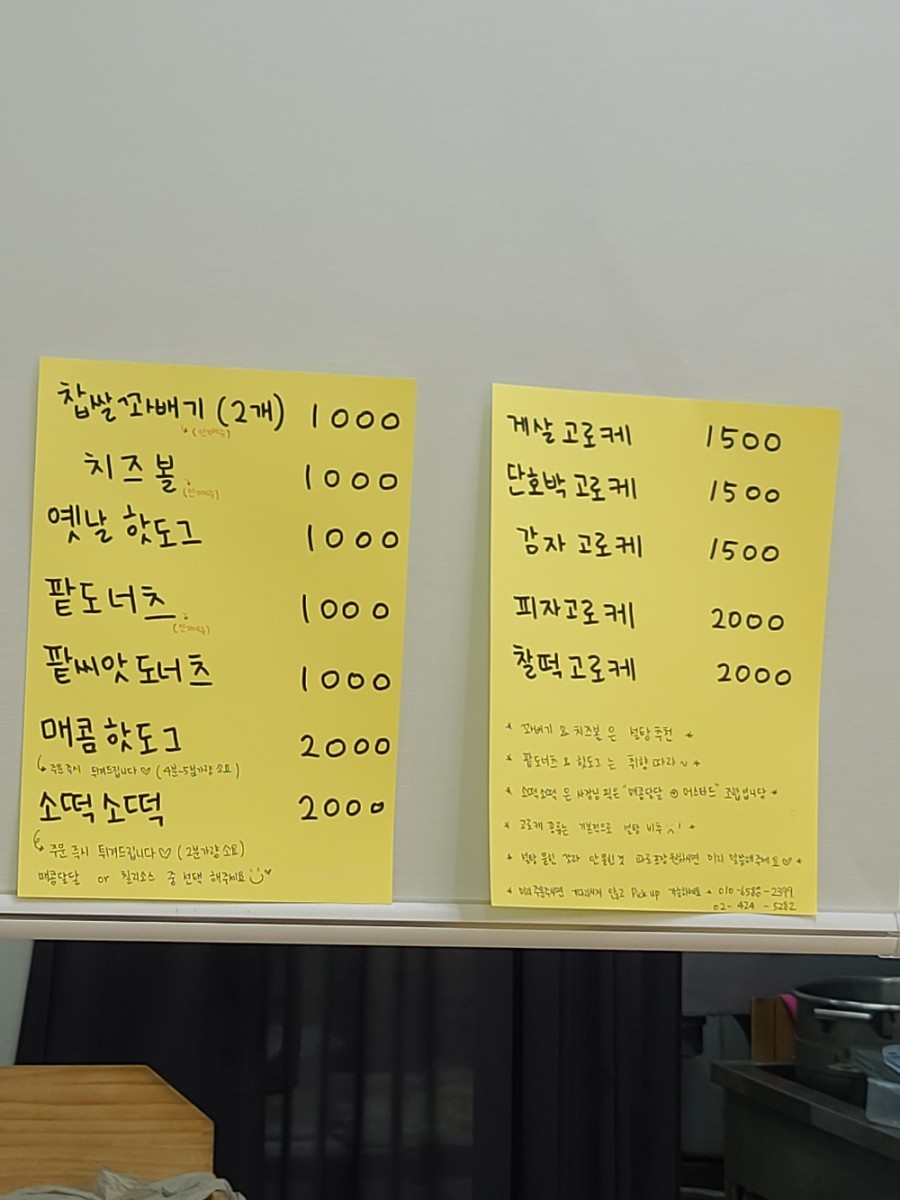 찹쌀꽈배기 (2개) 1000
(인기메뉴)
치즈볼 1000
(인기메뉴)
옛날 핫도그 1000
팥도너츠 1000
(인기메뉴)
팥씨앗 도너츠 1000
매콤핫도그 2000
주문 즉시 튀겨드립니다♡ (4분~5분가량 소요)
소떡소떡 2000
주문 즉시 튀겨드립니다♡ (2분가량 소요)
매콤달달 or 칠리소스 중 선택 해주세요
게살고로케 1500
단호박고로케 1500
감자 고로케 1500
피자고로케 2000
찰떡고로케 2000
* 꽈배기 & 치즈볼 은 설탕추천 *
* 팥도너츠 & 핫도그 는 취향 따라 *
* 소떡소떡 은 사장님 픽은 "매콤달달 @ 머스타드" 조합입니당 *
* 고로케 종류는 기본적으로 설탕 비추 *
* 설탕 묻힌 것과 안 묻힌 것 따로포장 원하시면 미리 말씀해주세요♡ *
* 미리 주문주시면 기다리시지 않고 Pick up 가능하세요 * 010-6580-2399
02-424-5282